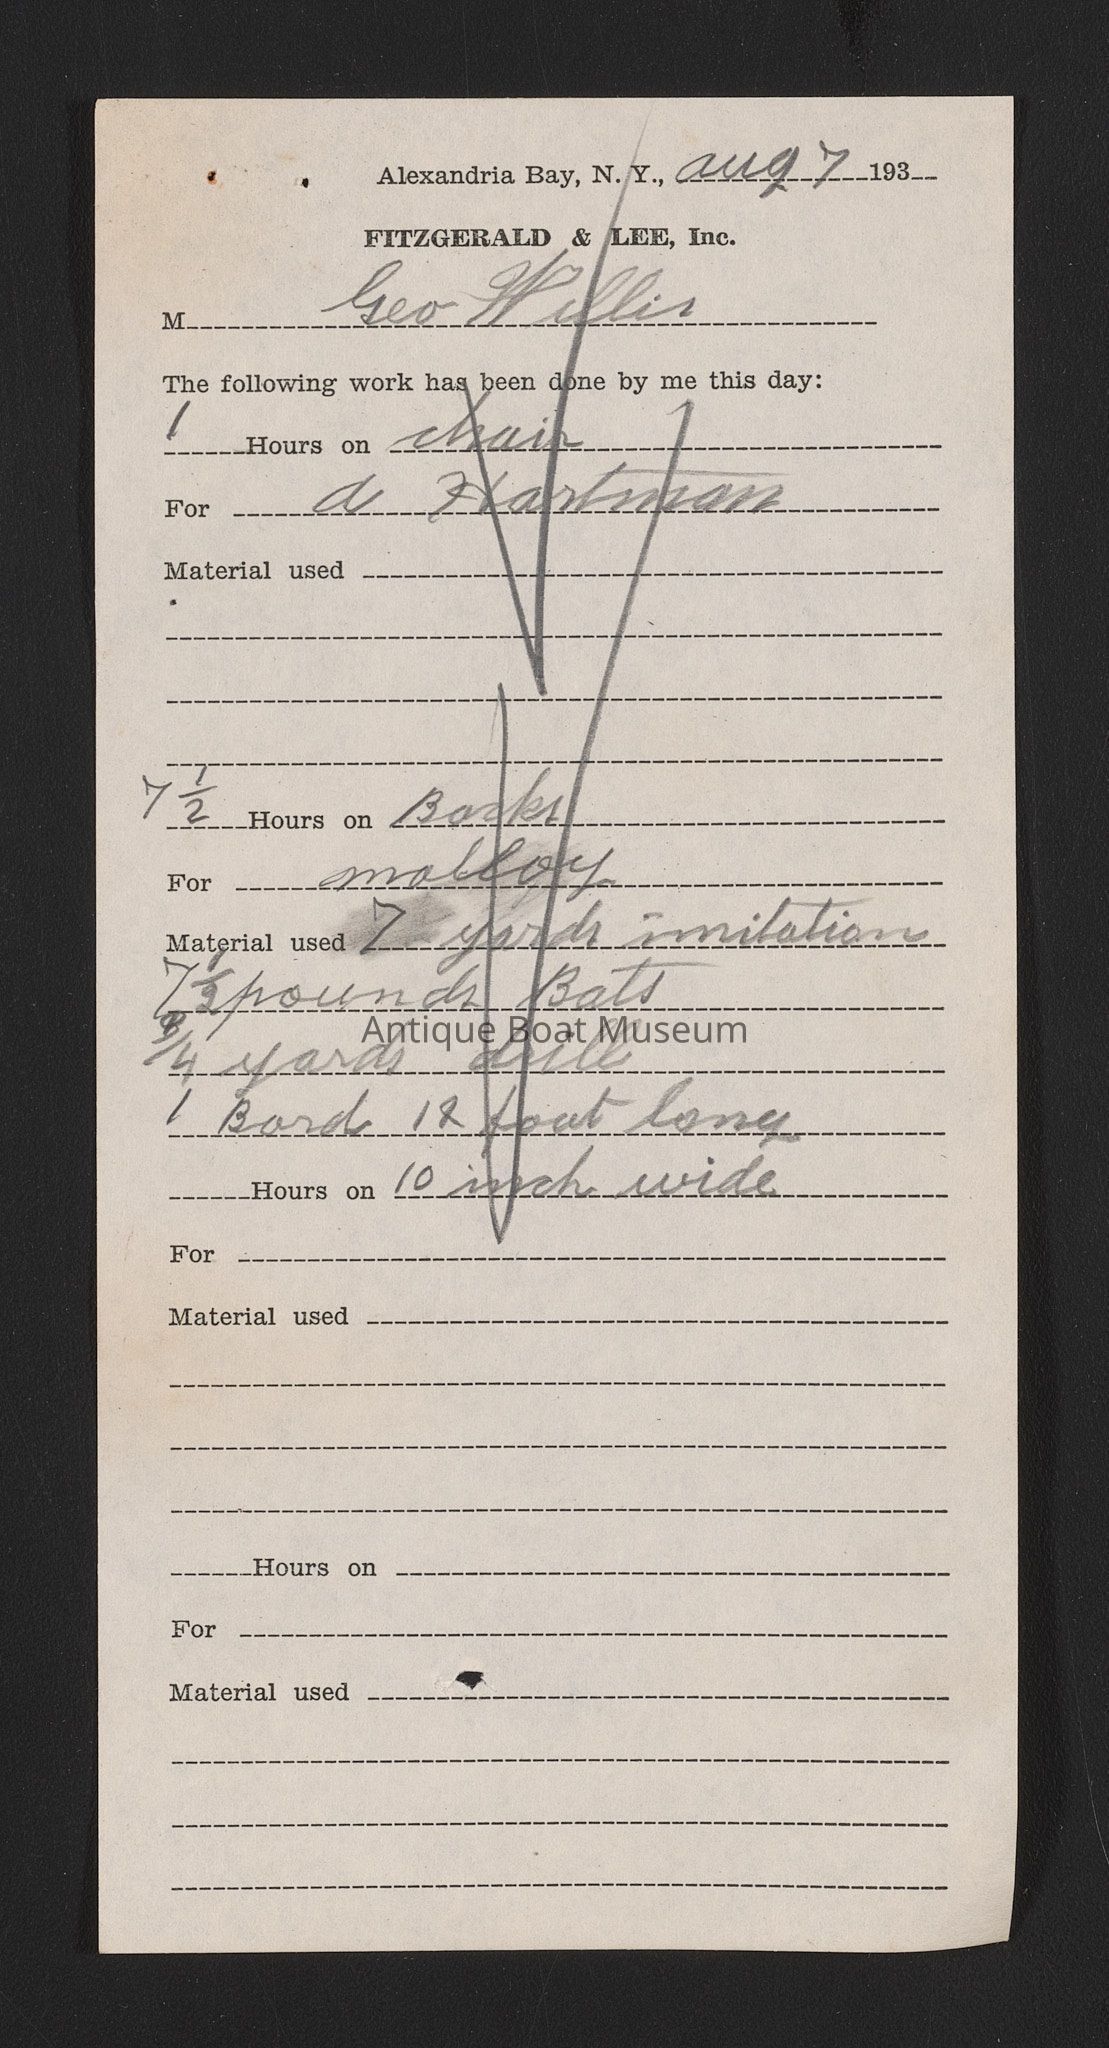 Alexandria Bay, N. Y., Aug 7 193
FITZGERALD & LEE, Inc.
M Geo Willis
The following work has been done by me this day:
1 Hours on chair
For a Hartman
Material used
7 1/2 Hours on Backs
For molloy
Material used 7 yards imitation
7 1/2 pounds Bats
Antique Boat Museum
3/4 yards drill
1 Bord 12 foot long
Hours on 10 inch wide
For
Material used
Hours on
For
Material used